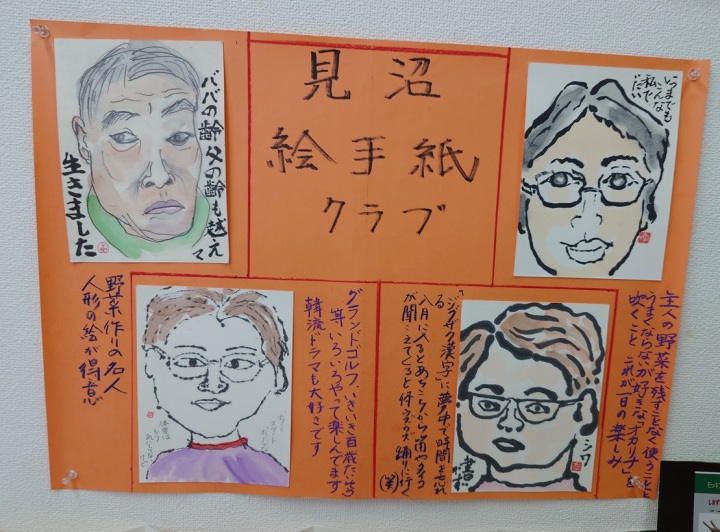 見沼
絵手紙
クラブ
ババの齢 父の齢も越えて
生きました
野菜作りの名人
人形の絵が得意
いつまでも
こんな
私で
主人の野菜を残すことなく使うことと
うまくならないが好きな「オカリナ」を
吹くこと これが一日の楽しみ
グランドゴルフ、いきいき百歳たいそう
等いろいろやって楽しんでます
韓流ドラマも大好きです
「ジグザグ漢字」に夢中で時間を忘れ
る
八月に入るとあちこちから
が聞こえてくると
踊りに行く
(笑)
シワ